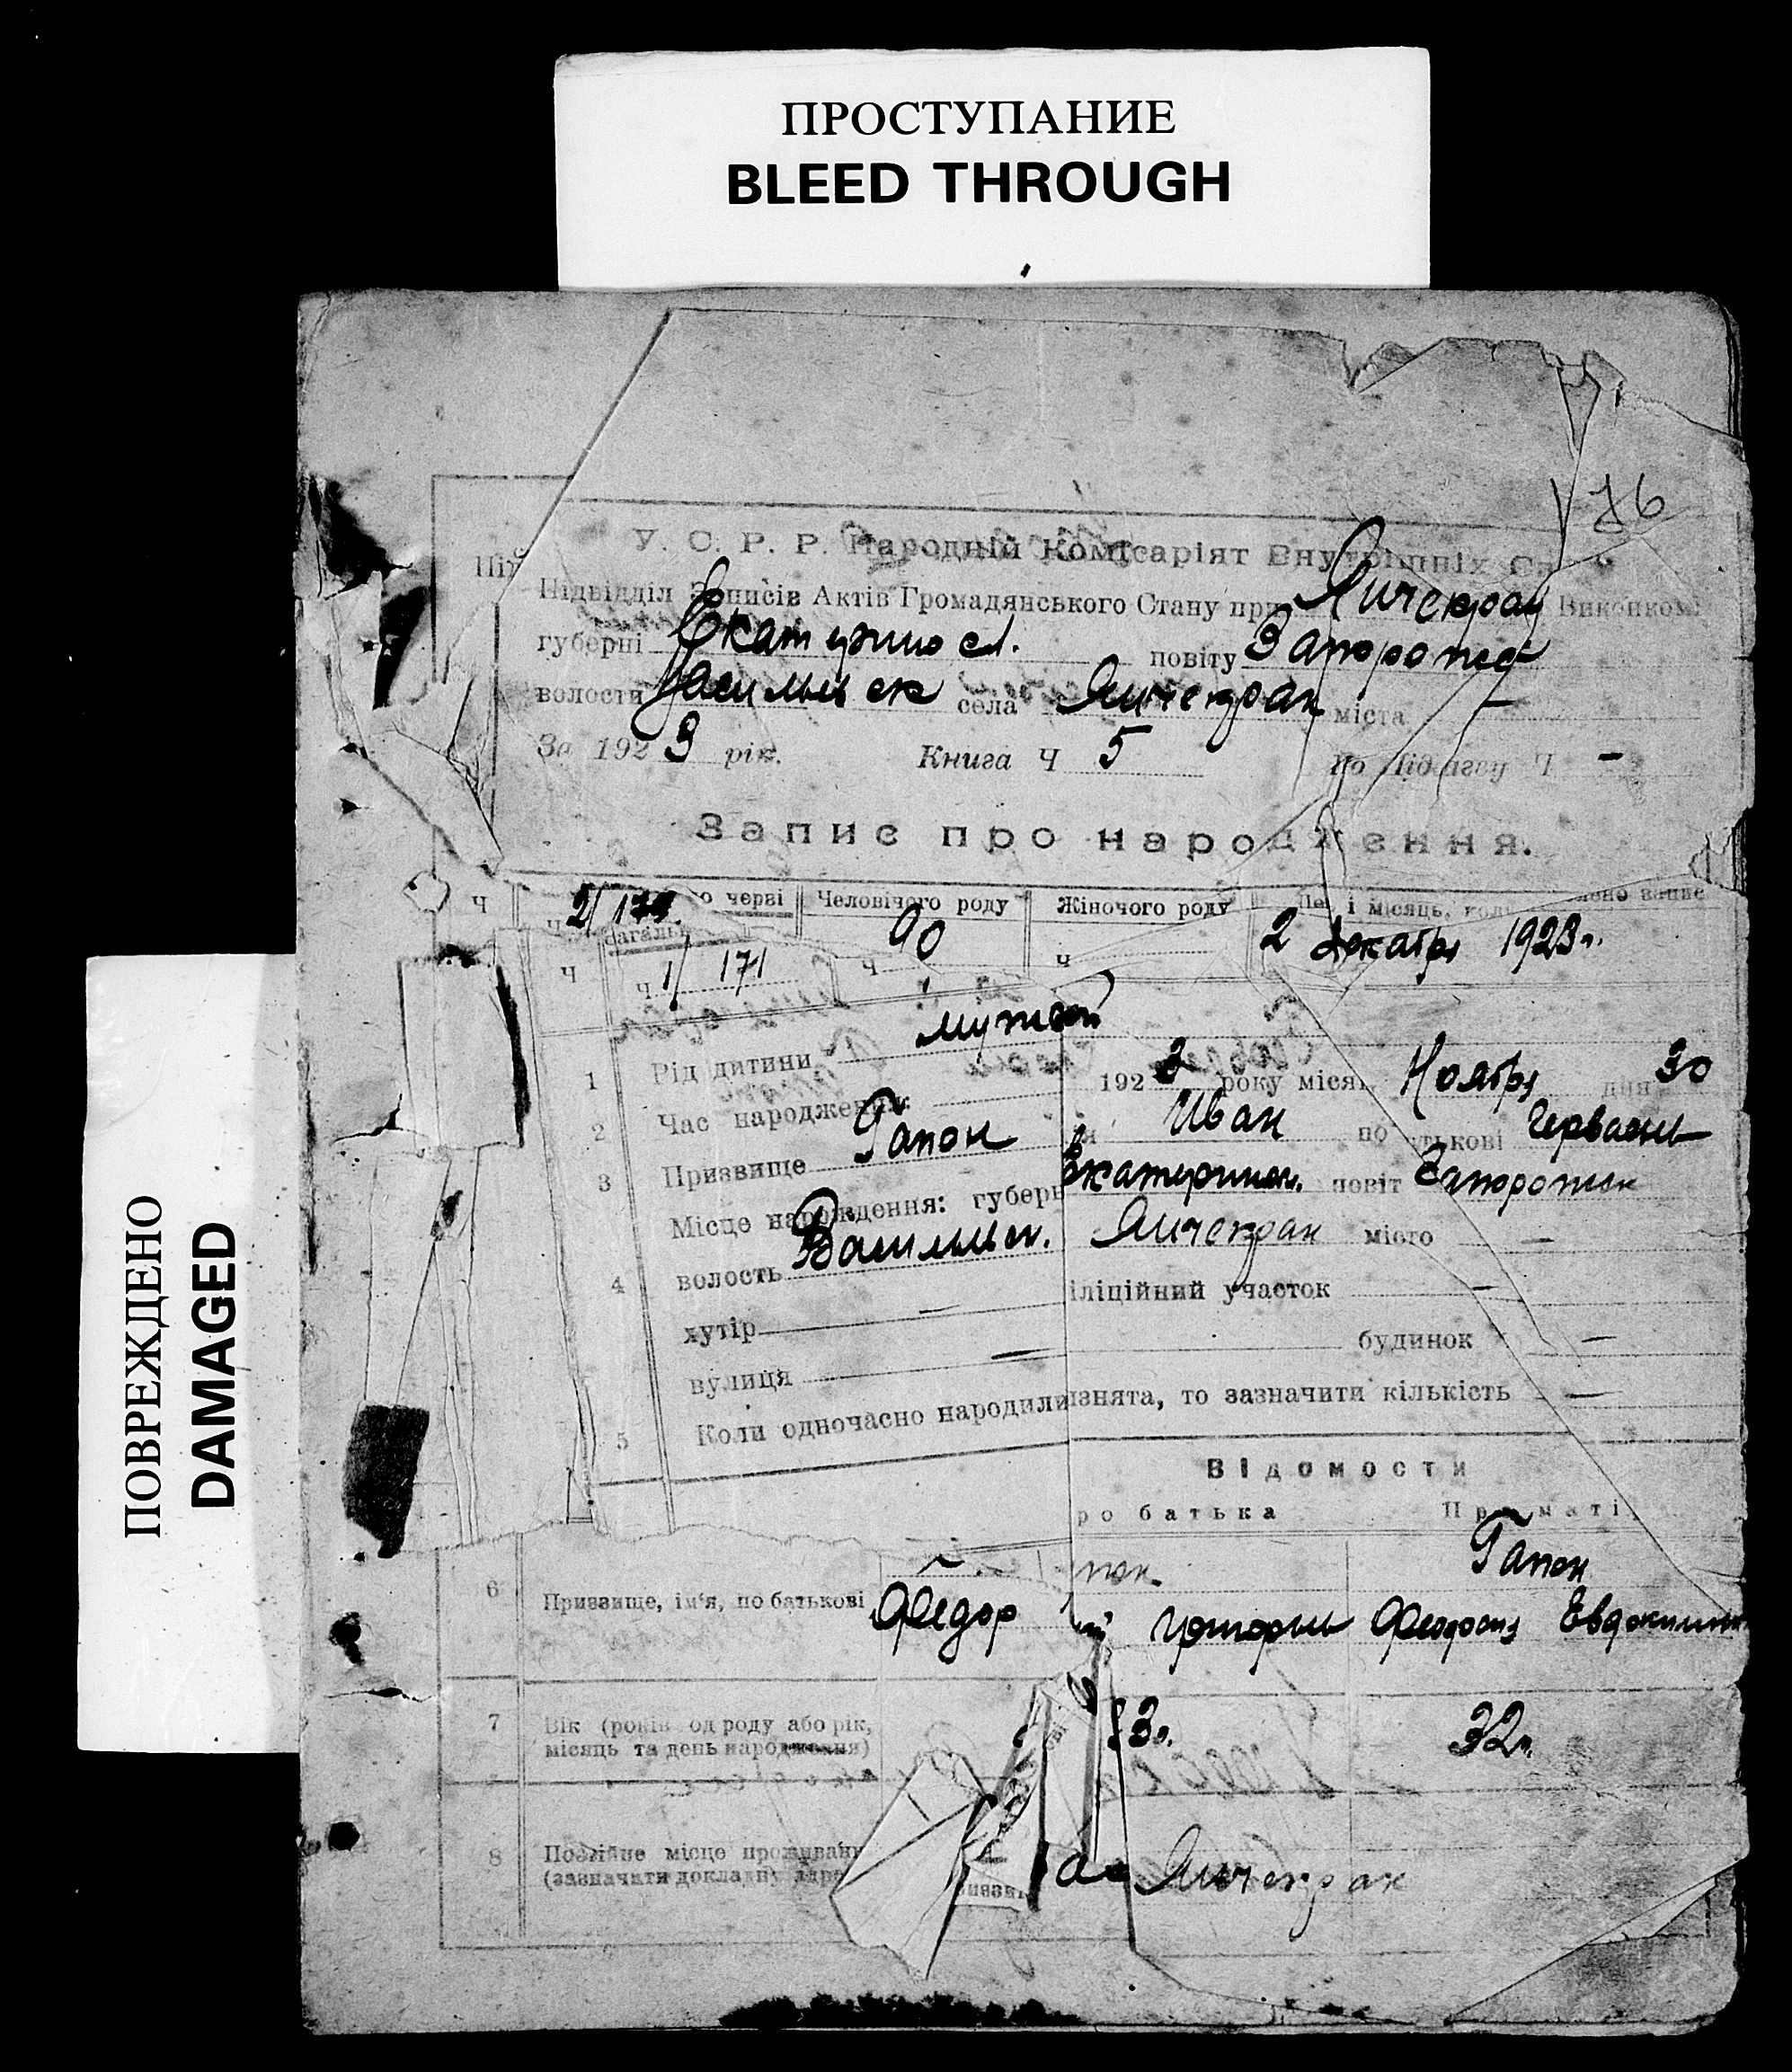 ПРОСТУПАНИЕ
BLEED THROUGH
ПОВРЕЖДЕНО
DAMAGED
76
У. С. Р. Р. Народній Комісаріят Внутрішніх Сп
Підвідділ Записів Актів Громадянського Стану при Янчекрак Виконкомі
губерні Екатеринос. повіту Запорожс
волости Васильевск села Янчекрак міста —
За 1923 рік. Книга Ч 5 По Підлггу Ч —
Запис про народження.
Ч о черві Человічого роду Жіночого роду і місяць, запис
загаль
ч 1/171 ч 90 ч 2 декабря 1923 г.
1 Рід дитини мужской
2 Час народження 1923 року місяц Ноября дня 30
3 Призвище Гапон Иван по батькові
4 Місце народження: губерн Екатеринос. повіт Запорожск
волость Васильев. Янчекрак місто —
хутір — іліційний участок —
вулиця — будинок —
5 Коли одночасно народили знята, то зазначити кількість —
Відомости
ро батька Про маті
6 Призвище, ім'я, по батькові пон Гапон
Федор Григорьев Феодосия Евдокимов
7 Вік (років од роду або рік, місяць та день народження) 33 г. 32 г.
8 Постійне місце проживанн (зазначити докладну адре Янчекрак